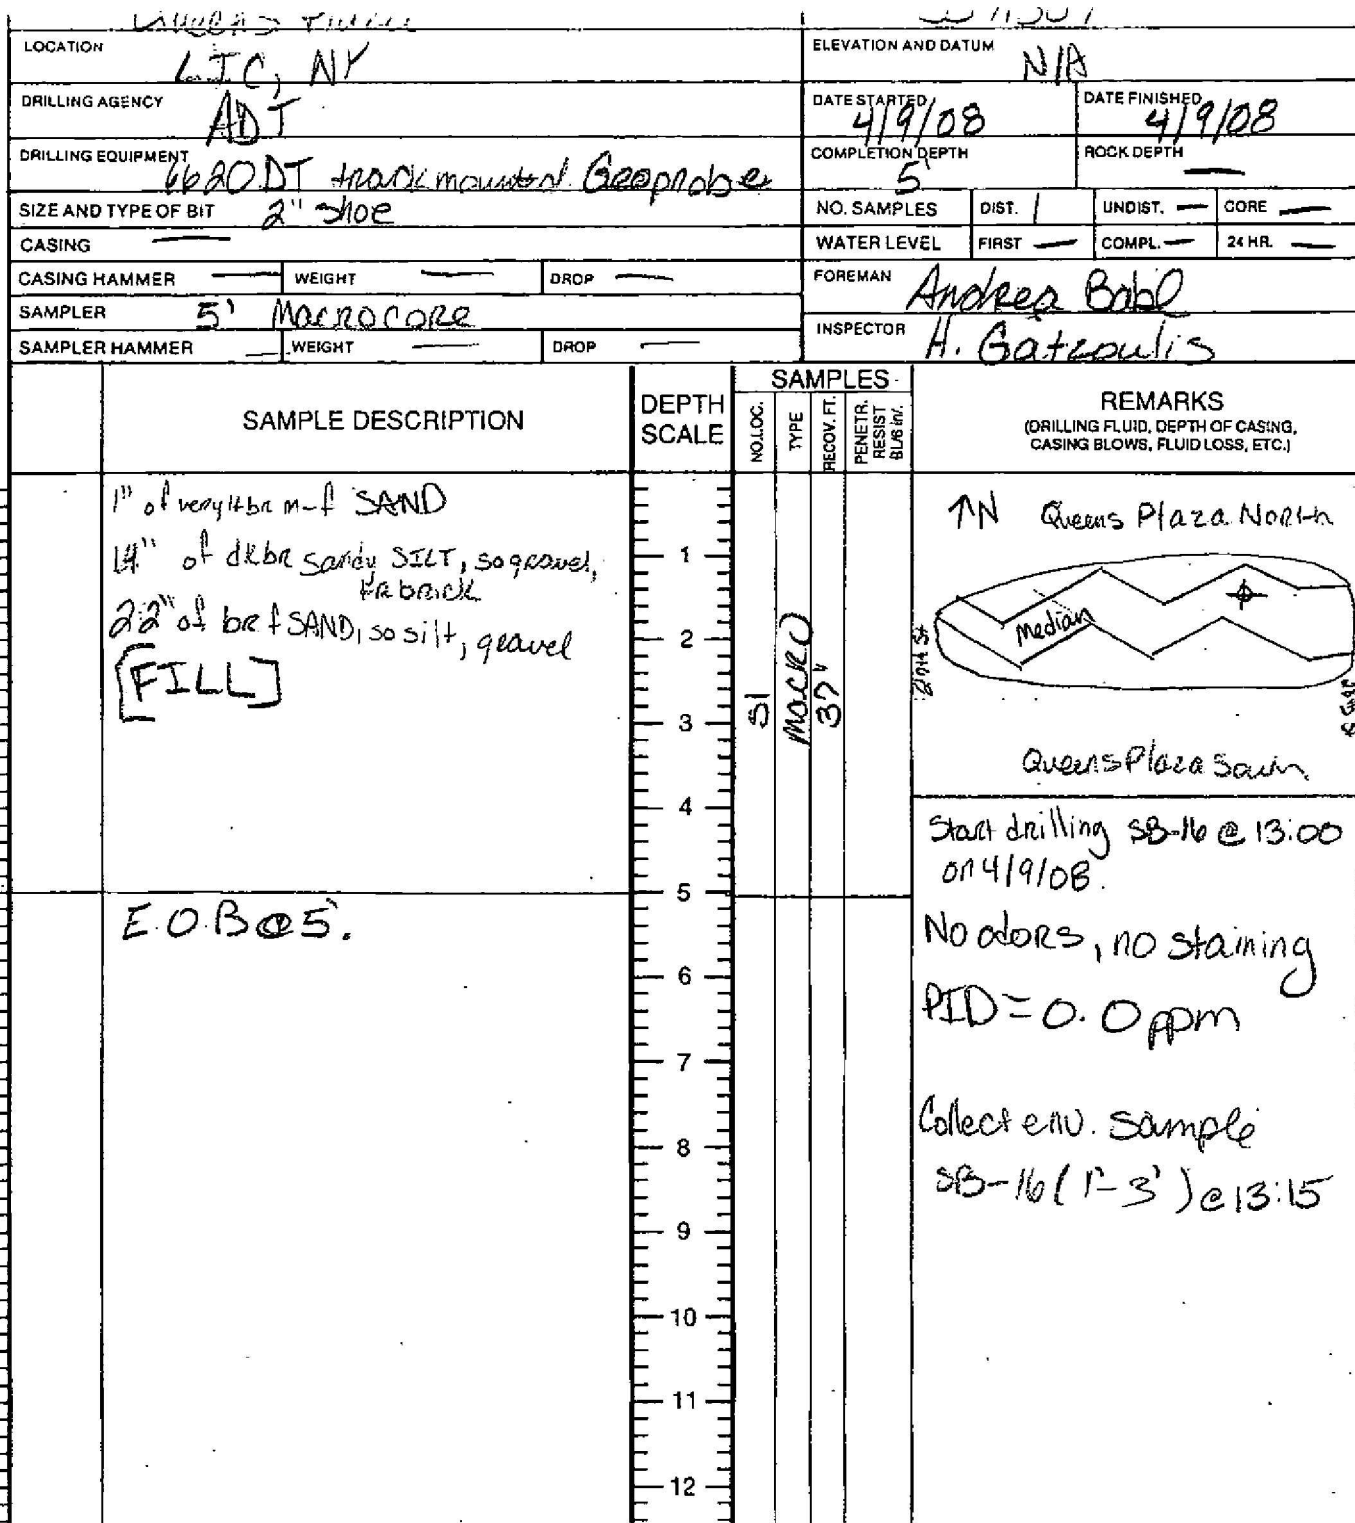 LOCATION
LIC, NY
ELEVATION AND DATUM
N/A
DRILLING AGENCY
ADT
DATE STARTED
4/9/08
DATE FINISHED
4/9/08
DRILLING EQUIPMENT
6620DT track mounted Geoprobe
COMPLETION DEPTH
5'
ROCK DEPTH —
SIZE AND TYPE OF BIT 2" shoe
NO. SAMPLES DIST. 1 UNDIST. — CORE —
CASING —
WATER LEVEL FIRST — COMPL. — 24 HR. —
CASING HAMMER — WEIGHT — DROP —
FOREMAN Andrea Babl
SAMPLER 5' Macrocore
INSPECTOR H. Gatzoulis
SAMPLER HAMMER — WEIGHT — DROP —
SAMPLE DESCRIPTION
DEPTH SCALE
SAMPLES
NO.LOC.
TYPE
RECOV. FT.
PENETR. RESIST BL/6 in.
REMARKS
(DRILLING FLUID, DEPTH OF CASING,
CASING BLOWS, FLUID LOSS, ETC.)
1" of very lt br m-f SAND
14" of dk br sandy SILT, so gravel,
tr brick
22" of br f SAND, so silt, gravel
[FILL]
E.O.B @ 5'.
1
2
3
4
5
6
7
8
9
10
11
12
S1
Macro
37"
↑N Queens Plaza North
Median
Queens Plaza South
Start drilling SB-16 @ 13:00
on 4/9/08.
No odors, no staining
PID = 0.0 ppm
Collect env. Sample
SB-16 (1'-3') @ 13:15